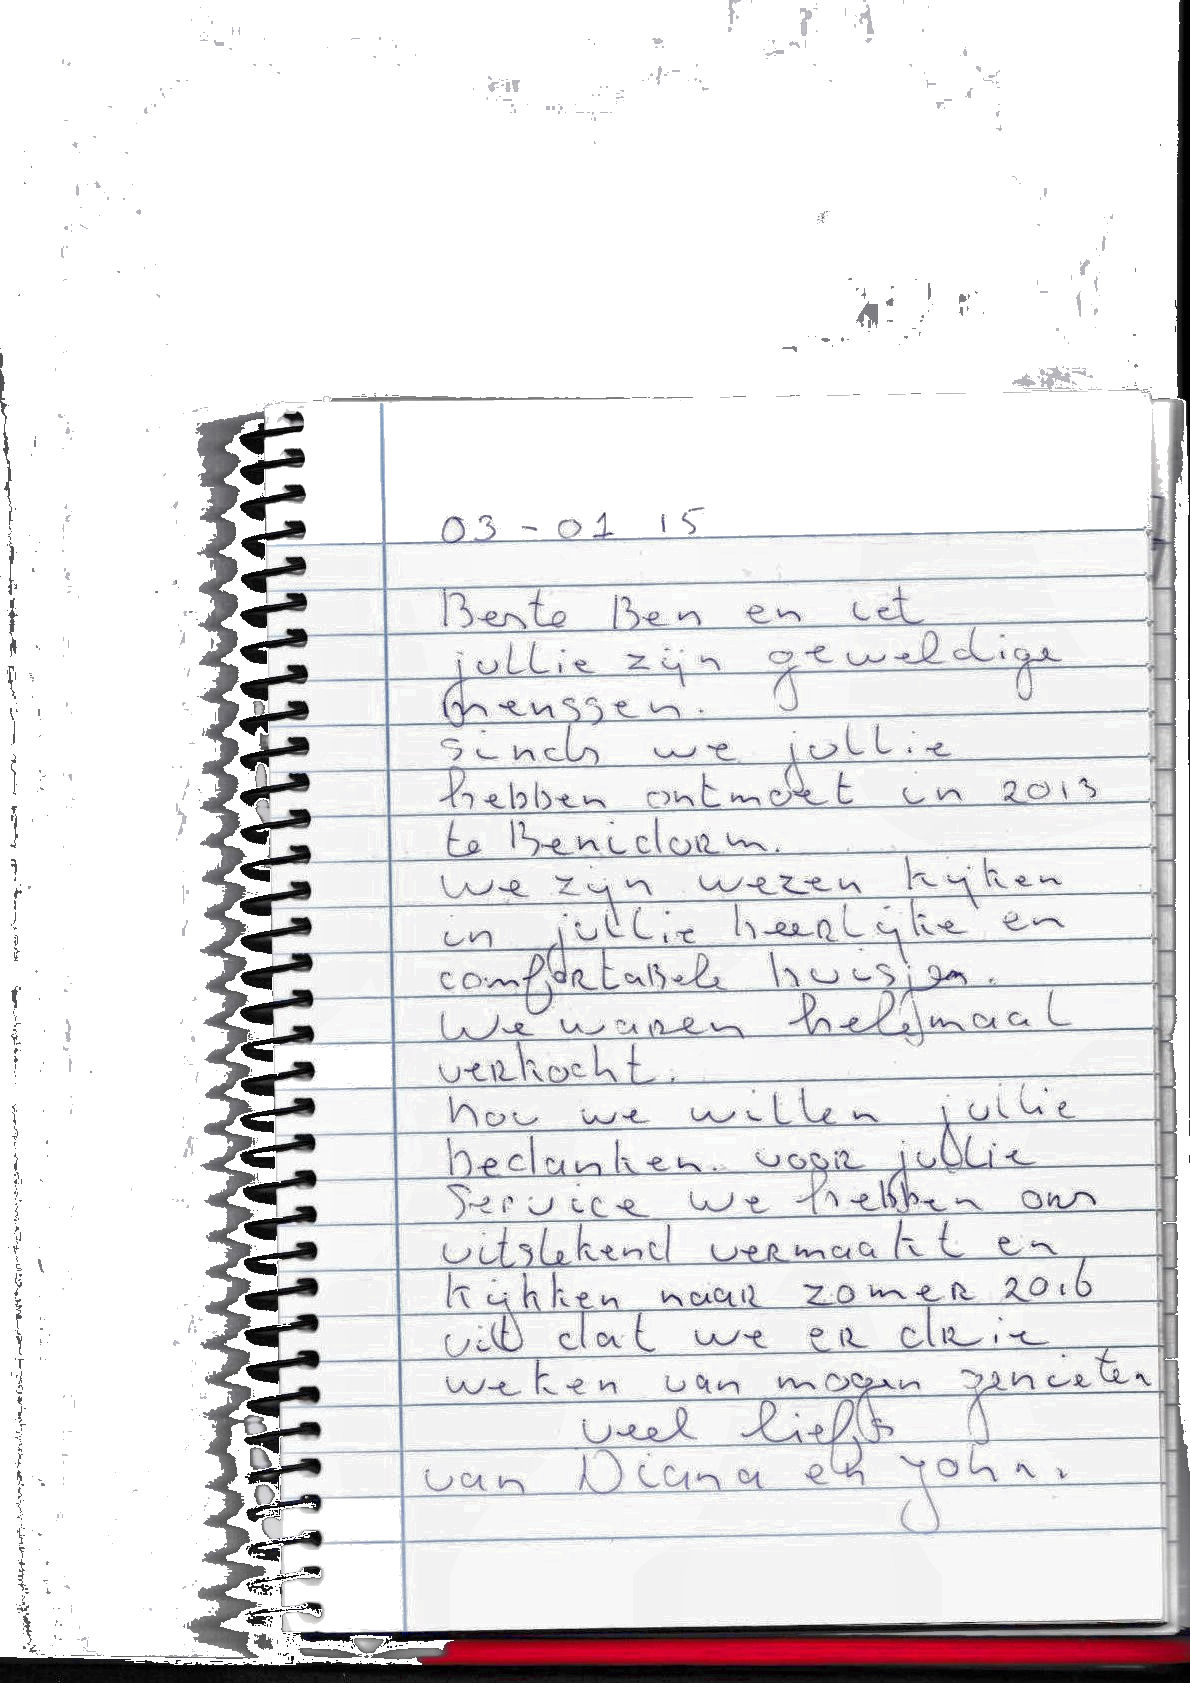 03-01 15
Beste Ben en iet
jullie zijn geweldige
menssen.
sinds we jullie
hebben ontmoet in 2013
te Benidorm.
we zijn wezen kijken
in jullie heerlijke en
comfortabele huisjen.
We waren helemaal
verkocht.
nou we willen jullie
bedanken. voor jullie
Service we hebben ons
uitstekend vermaakt en
kijkken naar zomer 2016
uit dat we er drie
weken van mogen genieten
veel liefs
van Diana en yohn.